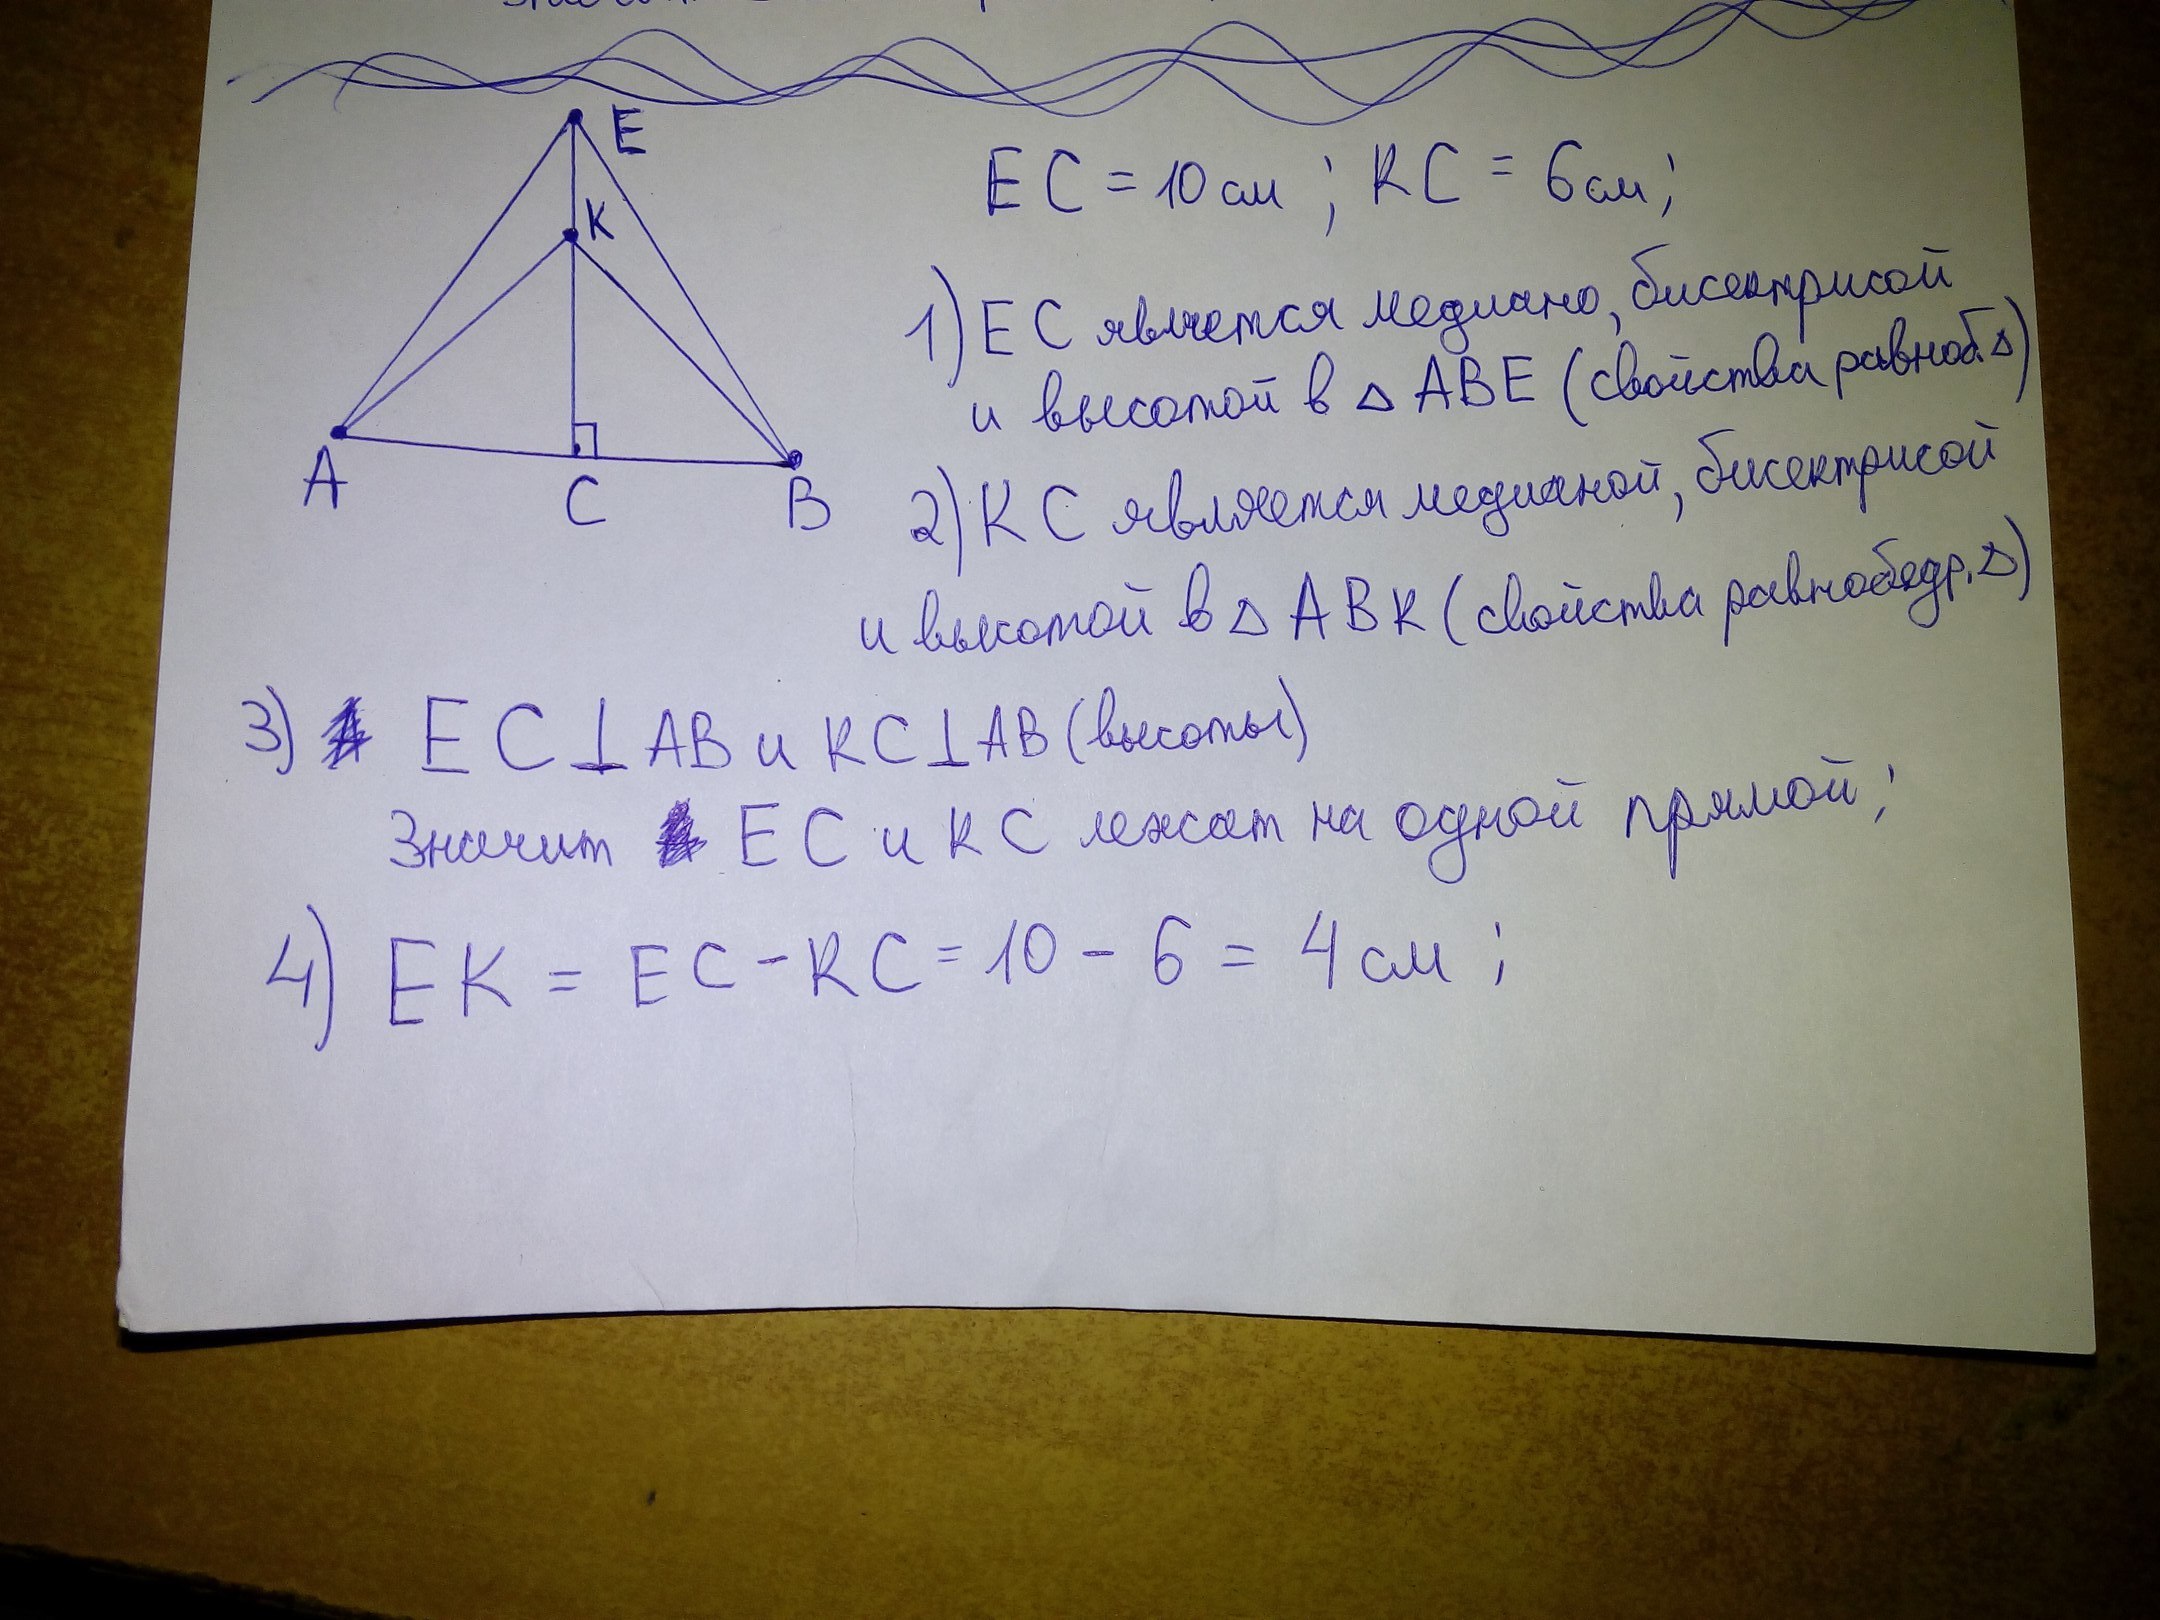 E
K
A
C
B
EC = 10 см ; KC = 6 см ;
1) EC является медиано, бисектрисой
и высотой в △ ABE (свойства равноб. △)
2) KC является медианой, бисектрисой
и высотой в △ ABK (свойства равнобедр. △)
3) EC ⊥ AB и KC ⊥ AB (высоты)
Значит EC и KC лежат на одной прямой ;
4) EK = EC - KC = 10 - 6 = 4 см ;